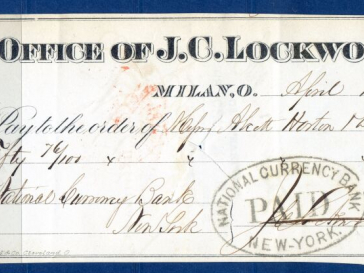 OFFICE OF J.C. LOCKWO
MILAN, O. April
Pay to the order of Messrs Alcott Horton
fty 76/100 x x
National Currency Bank
New York
NATIONAL CURRENCY BANK
PAID
NEW-YORK.